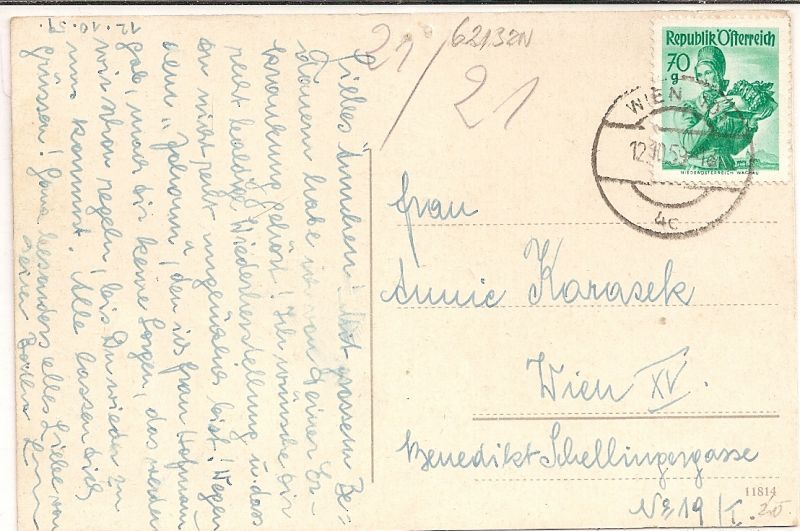 12.10.59.
Liebes Annchen! Mit grossem Be=
dauern habe ich von Deiner Er=
krankung gehört! Ich wünsche Dir
recht baldige Wiederherstellung u. dass
Du nicht zu ungeduldig bist! Wegen
dem "Johann", den ich Frau Hofmann
gab, mach dir keine Sorgen, das werden
wir schon regeln, bis Du wieder zu
uns kommst. Alle lassen Dich
grüssen! Ganz besonders alles Liebe von
Deiner
21/21
62132N
Republik Österreich
70
g
NIEDERÖSTERREICH WACHAU
WIEN
12.10.59
4c
Frau
Annie Karasek
Wien XV.
Benedikt Schellingergasse
No 19/I.
11814